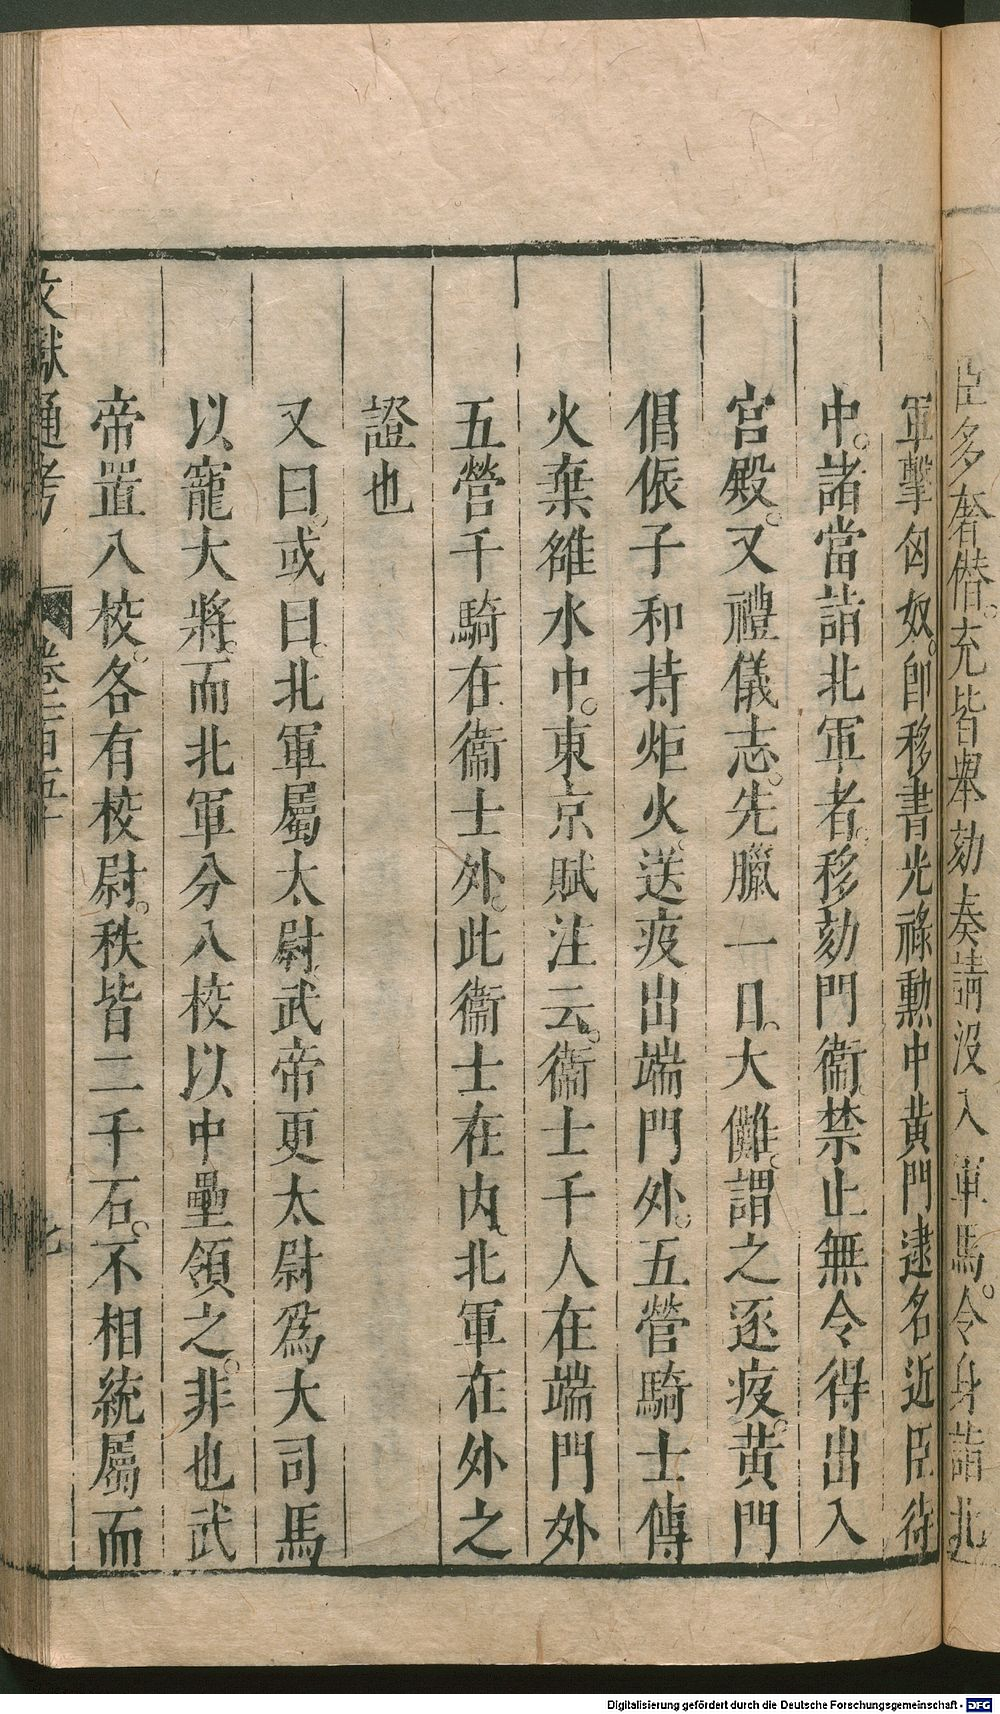 臣多奢僭。充皆舉劾奏請没入車馬。令身詣北
軍擊匈奴。即移書光祿勳中黃門逮名近臣待
中。諸當詣北軍者。移劾門衛禁止無令得出入
宮殿。又禮儀志。先臘一日。大儺。謂之逐疫。黃門
倡侲子和持炬火。送疫出端門外。五營騎士傳
火棄雒水中。東京賦注云。衞士千人在端門外
五營千騎在衞士外。此衞士在内。北軍在外之
證也
又曰。或曰。北軍屬太尉。武帝更太尉爲大司馬
以寵大將。而北軍分八校以中壘領之。非也武
帝置八校。各有校尉。秩皆二千石。不相統屬而
文獻通考 卷一百五十 七
Digitalisierung gefördert durch die Deutsche Forschungsgemeinschaft - DFG